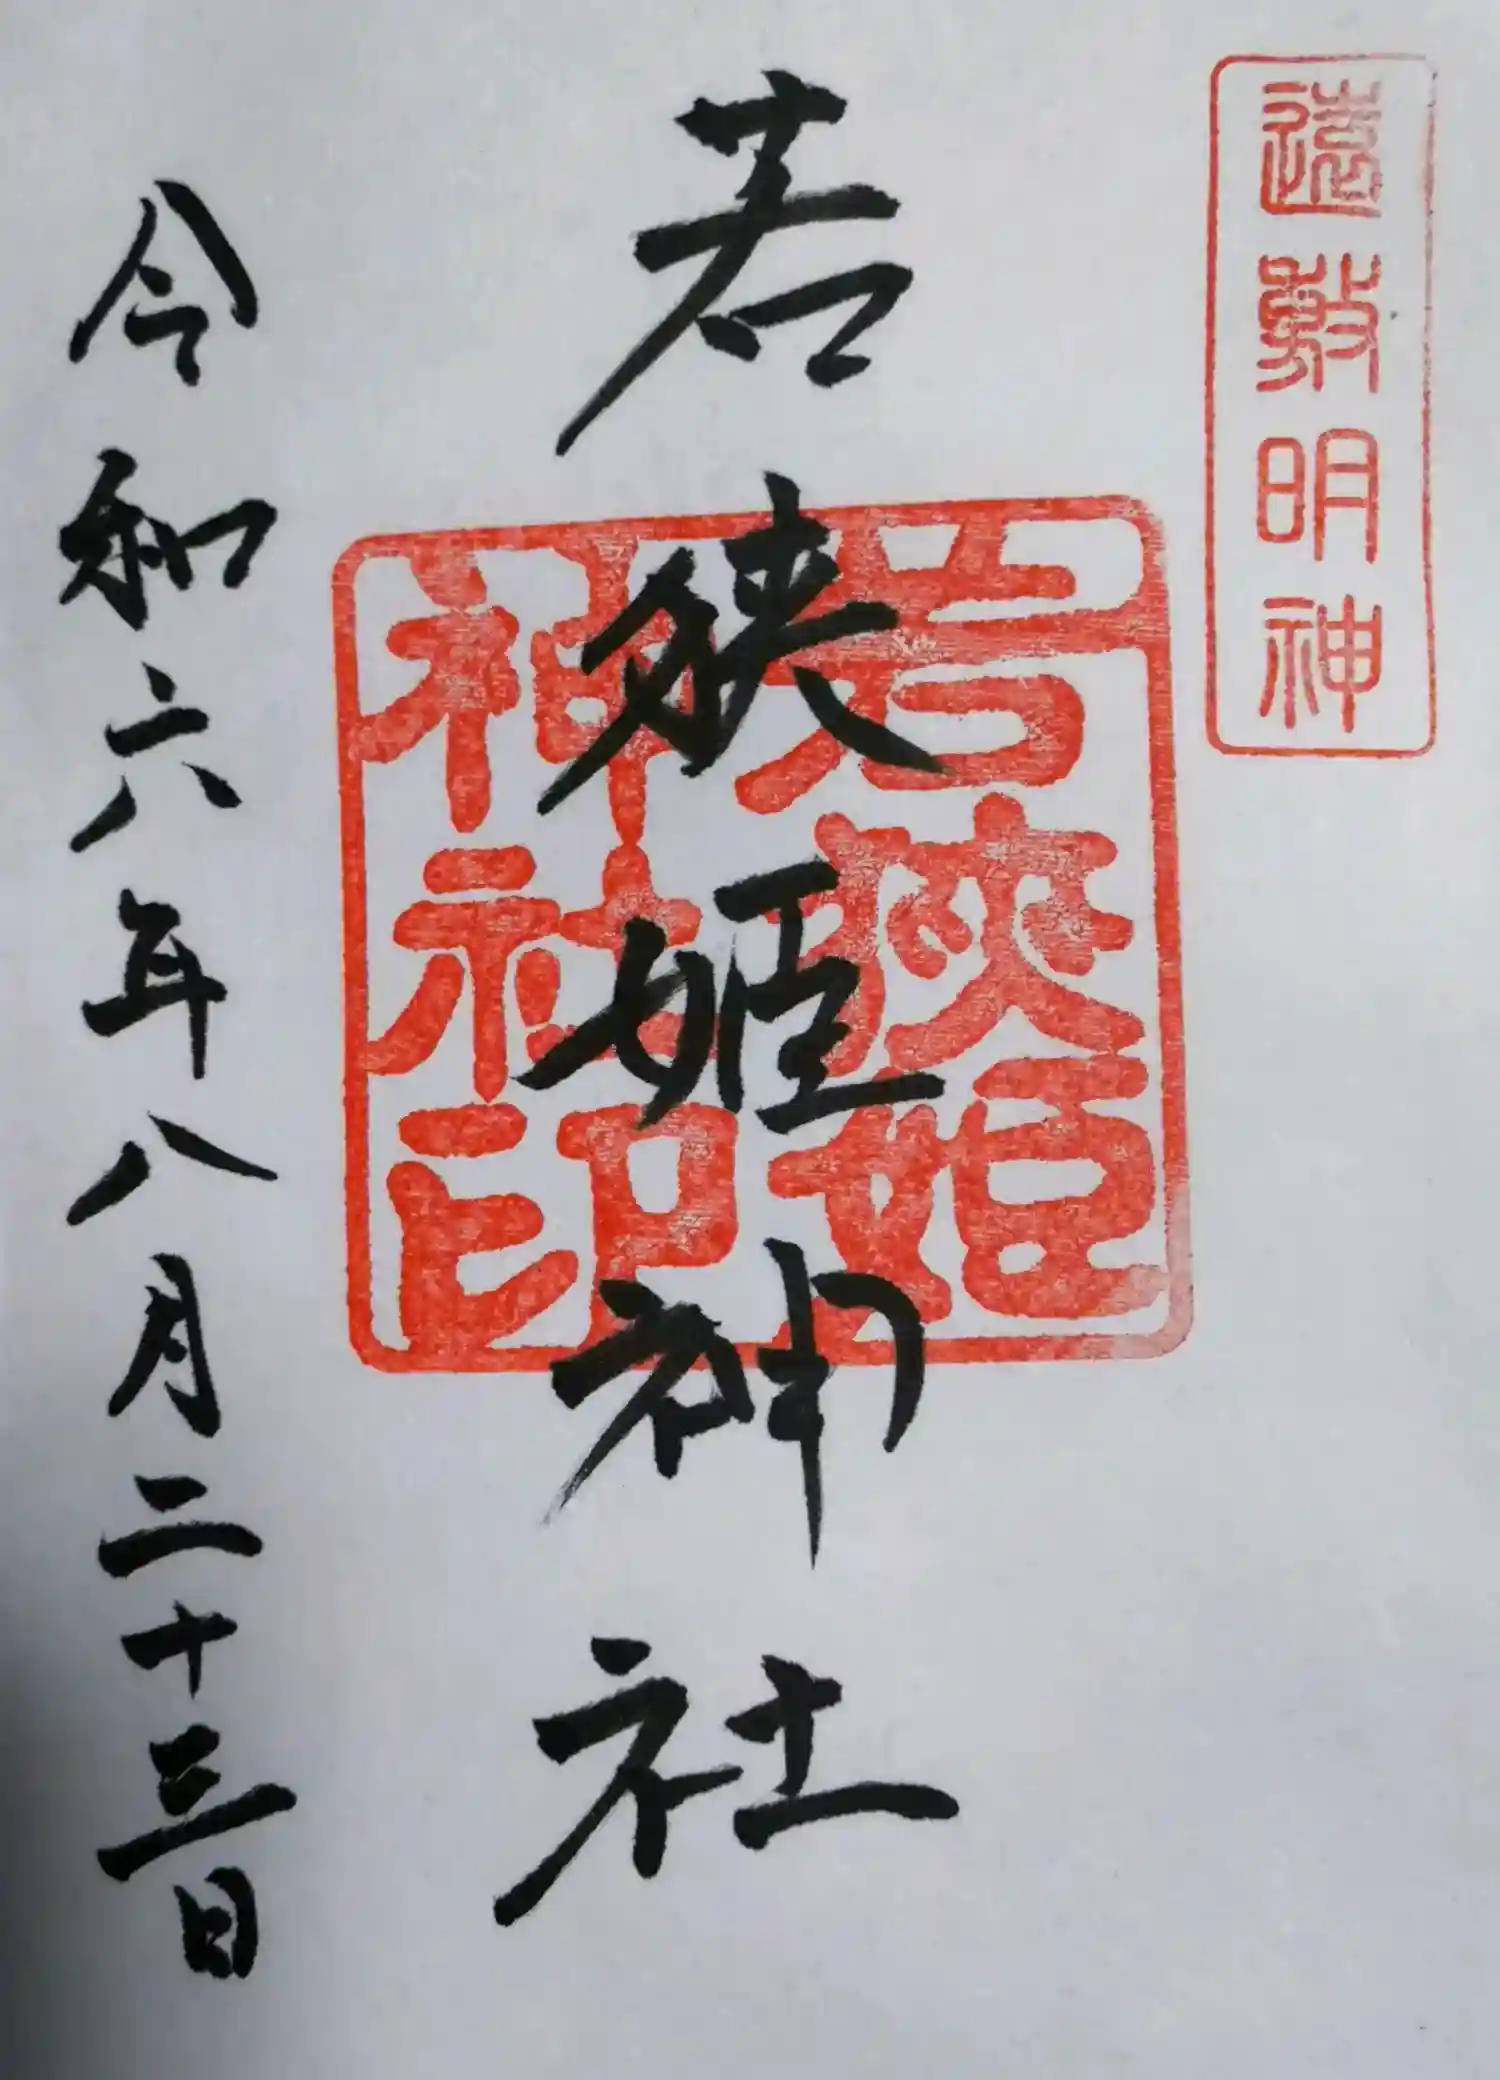 遠敷明神
若狭姫神社
若狭姫
神社印
令和六年八月二十三日